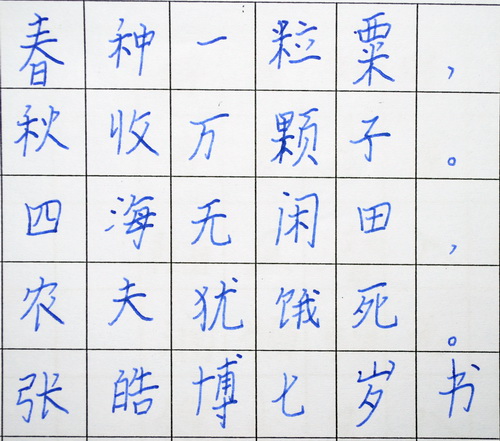 春种一粒粟，
秋收万颗子。
四海无闲田，
农夫犹饿死。
张皓博七岁书